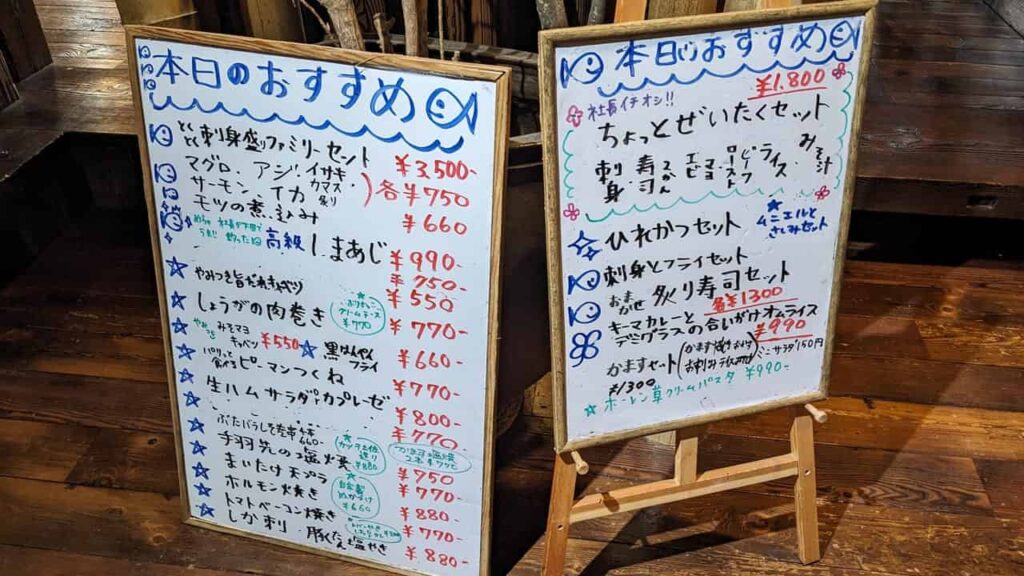 本日のおすすめ
とくとく刺身盛りファミリーセット ¥3,500-
マグロ、アジ、イサキ
サーモン、イカ カマス 各¥750
モツの煮込み ¥660
高級しまあじ ¥990-
750-
やみつき旨だれキャベツ ¥550
しょうがの肉巻き ¥770-
クリームチーズ
¥770
みそマヨ
キャベツ ¥550
黒はんぺんフライ ¥660-
パリッと食べる ピーマンつくね ¥770-
生ハム サラダ カプレーゼ ¥800-
ぶたバラしそ ¥770
手羽先の塩焼 ¥750
¥880
まいたけ天プラ ¥770-
自家製
ぬか漬け
¥660
ホルモン焼き ¥880-
トマトベーコン焼き ¥770-
しか刺 ¥880-
本日のおすすめ
¥1.800
社長イチオシ!!
ちょっとぜいたくセット
刺身 寿司 エビマヨ ローストビーフ ライス みそ汁
ひれかつセット
ムニエルと
さしみセット
刺身とフライセット
おまかせ 炙り寿司セット
各¥1300
キーマカレーと
デミグラスの合いがけオムライス
¥990
かますセット
¥1300
ミニサラダ150円
ホーレン草クリームパスタ ¥990-